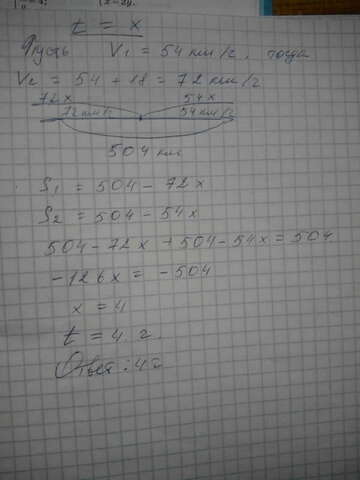 t = x
Пусть V1 = 54 км/г, тогда
V2 = 54 + 18 = 72 км/г
72x 54x
72км/г 54км/г
504 км
S1 = 504 - 72x
S2 = 504 - 54x
504 - 72x + 504 - 54x = 504
-126x = -504
x = 4
t = 4 г.
Ответ: 4г